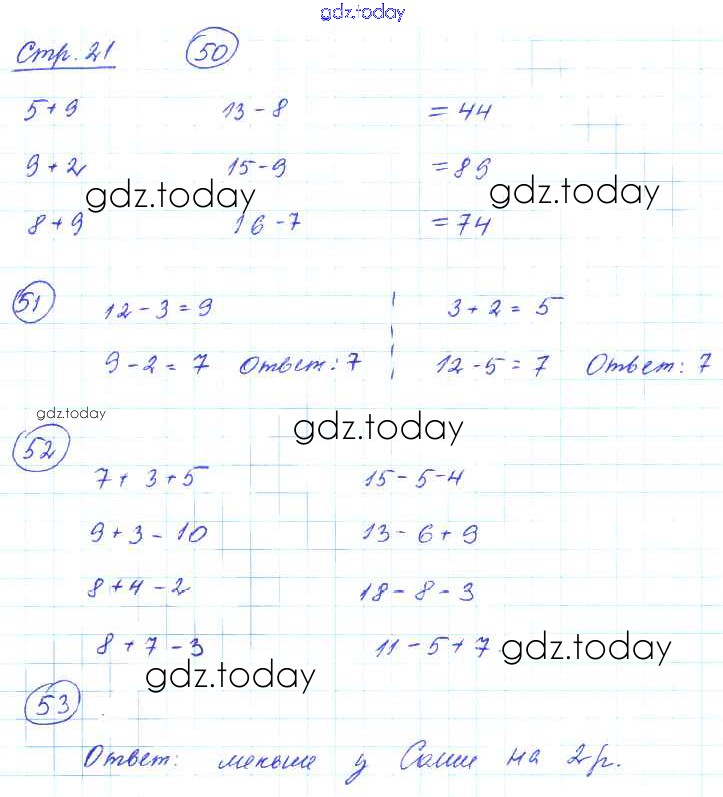 gdz.today
Стр. 21 50
5+9 13-8 = 44
9+2 15-9 = 89
gdz.today gdz.today
8+9 16-7 = 74
51 12-3=9 3+2=5
9-2=7 Ответ: 7 12-5=7 Ответ: 7
gdz.today gdz.today
52
7+3+5 15-5-4
9+3-10 13-6+9
8+4-2 18-8-3
8+7-3 11-5+7
gdz.today gdz.today
53
Ответ: меньше у Саши на 2 р.